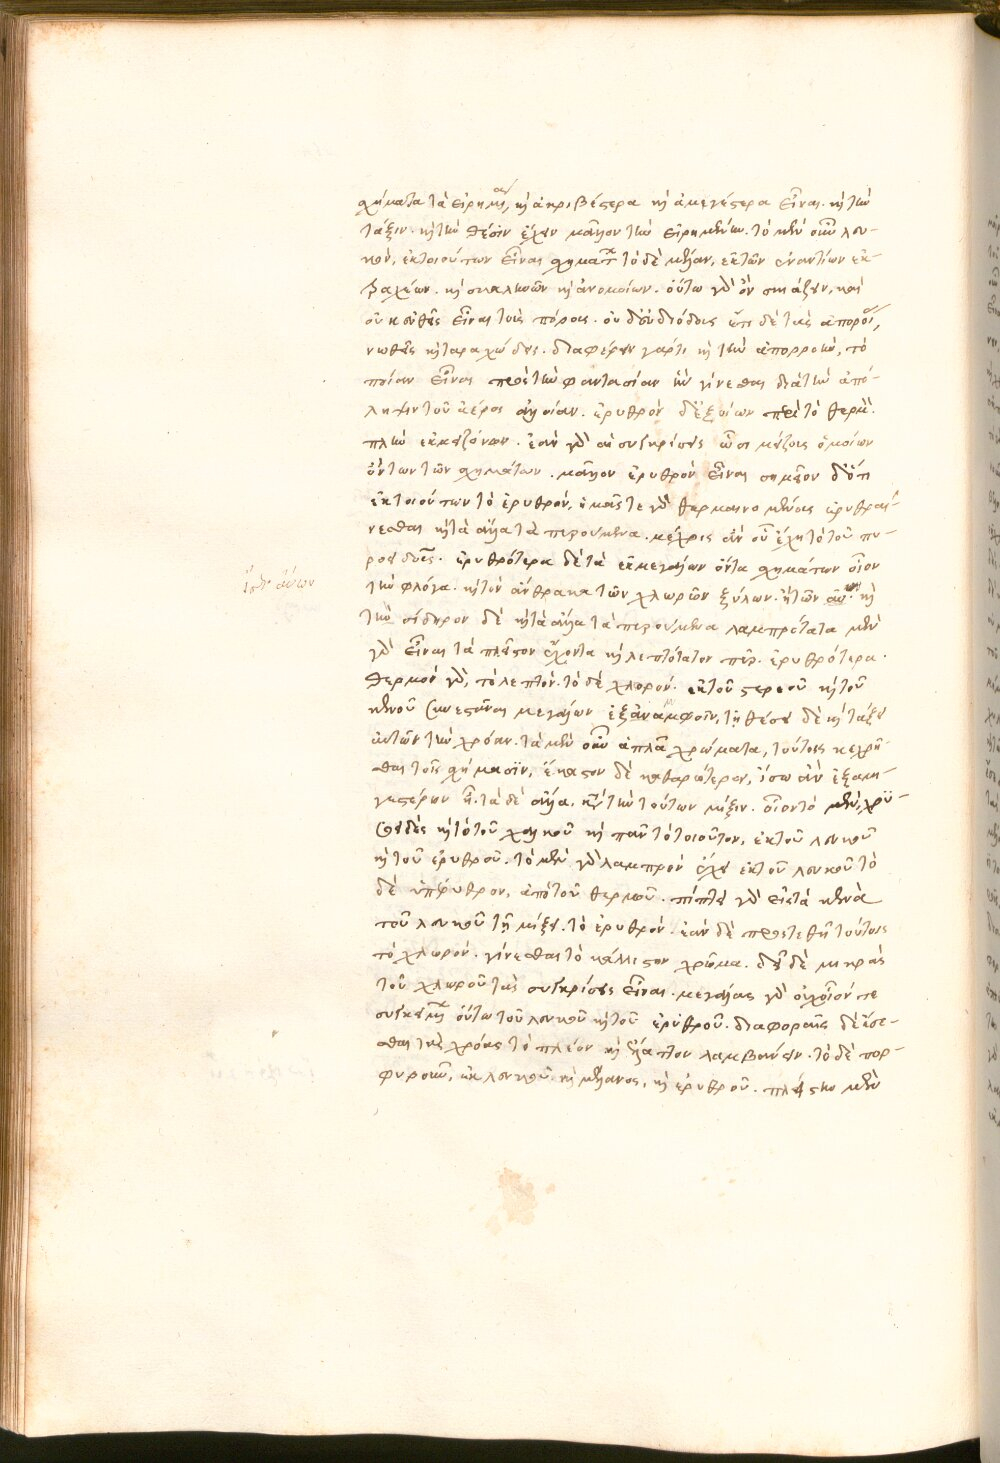 χήματα τὰ εἰρημένας, καὶ ἀκριβέστερα καὶ ἀμεγέστερα εἶναι. καὶ τὴν
τάξιν. καὶ τὴν θέσιν ἔχειν μᾶλλον τὴν εἰρημένην. τὸ μὲν οὖν λευ-
κὸν, ἐκ τοιούτων εἶναι σχημάτων τὸ δὲ μέλαν, ἐκ τῶν ἐναντίων ἐκ
βαχέων. καὶ σκαληνῶν καὶ ἀνομοίων. οὕτω γὰρ ἂν σκιάζειν, καὶ
οὐκ εὐθεῖς εἶναι τοὺς πόρους. οὐ δ' εὐδιόδοις ἔτι δὲ τὰς ἀπορροίας,
νωθεῖς καὶ ταραχώδεις. διαφέρειν γάρ τι καὶ τὴν ἀπορροιὴν, τὸ
ποίαν εἶναι πρὸς τὴν φαντασίαν ἣν γίνεσθαι διὰ τὴν ἀπό-
ληψιν τοῦ ἀέρος ἀλλοίαν. ἐρυθρὸν δ' ἐξ οἵων περ τὸ θερμὸν.
πλὴν ἐκ μειζόνων. ἐὰν γὰρ αἱ συγκρίσεις ὦσι μείζους ὁμοίων
ὄντων τῶν σχημάτων. μᾶλλον ἐρυθρὸν εἶναι σημεῖον δ' ὅτι
ἐκ τοιούτων τὸ ἐρυθρόν, ἡμᾶς τε γὰρ θερμαινομένους ἐρυθραί-
νεσθαι καὶ τὰ ἄλλα τὰ πυρούμενα. μέχρις ἂν οὗ ἔχῃ τὸ τοῦ πυ-
ροειδοῦς. ἐρυθρότερα δὲ τὰ ἐκ μεγάλων ὄντα σχημάτων οἷον
τὴν φλόγα. καὶ τὸν ἄνθρακα τῶν χλωρῶν ξύλων. ἢ τῶν αὔων. καὶ
τὸν σίδηρον δὲ καὶ τὰ ἄλλα τὰ πυρούμενα λαμπρότατα μὲν
γὰρ εἶναι τὰ πλεῖστον ἔχοντα καὶ λεπτότατον πῦρ. ἐρυθρότερα.
θερμὸν γὰρ, τὸ λεπτόν. τὸ δὲ χλορόν. ἐκ τοῦ στερεοῦ καὶ τοῦ
κενοῦ συνεστάναι μεγάλων ἐξ ἀναμφοῖν, τῇ θέσει δὲ καὶ τάξει
αὐτῶν τὴν χρόαν. τὰ μὲν οὖν ἁπλᾶ χρώματα, τούτοις κεχρῆ-
σθαι τοῖς σχήμασϊν, ἕκαστον δὲ καθαρώτερον, ὅσω ἂν ἐξ ἀμι-
γεστέρων ᾖ. τὰ δὲ ἄλλα. κατὰ τὴν τούτων μίξιν. οἷον τὸ μὲν, χρϋ-
σοειδὲς καὶ τὸ τοῦ χαλκοῦ καὶ πᾶν τὸ τοιοῦτον, ἐκ τοῦ λευκοῦ
καὶ τοῦ ἐρυθροῦ. τὸ μὲν γὰρ λαμπρὸν ἔχει ἐκ τοῦ λευκοῦ τὸ
δὲ ὑπέρυθρον, ἀπὸ τοῦ θερμοῦ. πίπτει γὰρ εἰς τὰ κενὰ
τοῦ λευκοῦ τῇ μίξει. τὸ ἐρυθρόν. ἐὰν δὲ προστεθῇ τούτοις
τὸ χλωρόν. γίνεσθαι τὸ κάλλιστον χρῶμα. δεῖ δὲ μικρὰς
τοῦ χλωροῦ τὰς συγκρίσεις εἶναι. μεγάλας γὰρ οὐχ οἷόν τε
συγκειμένων οὕτω τοῦ λευκοῦ καὶ τοῦ ἐρυθροῦ. διαφοραῖς δὲ ἔσε-
σθαι τὰς χρόας τὸ πλέον καὶ ἔλαττον λαμβάνειν. τὸ δὲ πορ-
φυροῦν, ἐκ λευκοῦ καὶ μέλανος, καὶ ἐρυθροῦ. πλείστην μὲν